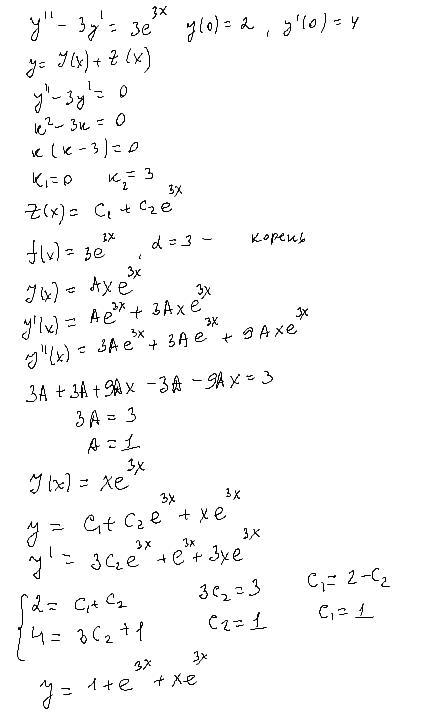 y'' - 3y' = 3e^{3x}   y(0) = 2 , y'(0) = 4
y = Y(x) + Z(x)
y'' - 3y' = 0
к² - 3к = 0
к(к - 3) = 0
к₁ = 0   к₂ = 3
Z(x) = C₁ + C₂e^{3x}
f(x) = 3e^{3x} , α = 3 - корень
Y(x) = Axe^{3x}
y'(x) = Ae^{3x} + 3Axe^{3x}
y''(x) = 3Ae^{3x} + 3Ae^{3x} + 9Axe^{3x}
3A + 3A + 9Ax - 3A - 9Ax = 3
3A = 3
A = 1
Y(x) = xe^{3x}
y = C₁ + C₂e^{3x} + xe^{3x}
y' = 3C₂e^{3x} + e^{3x} + 3xe^{3x}
{ 2 = C₁ + C₂   3C₂ = 3   C₁ = 2 - C₂
4 = 3C₂ + 1   C₂ = 1   C₁ = 1
y = 1 + e^{3x} + xe^{3x}